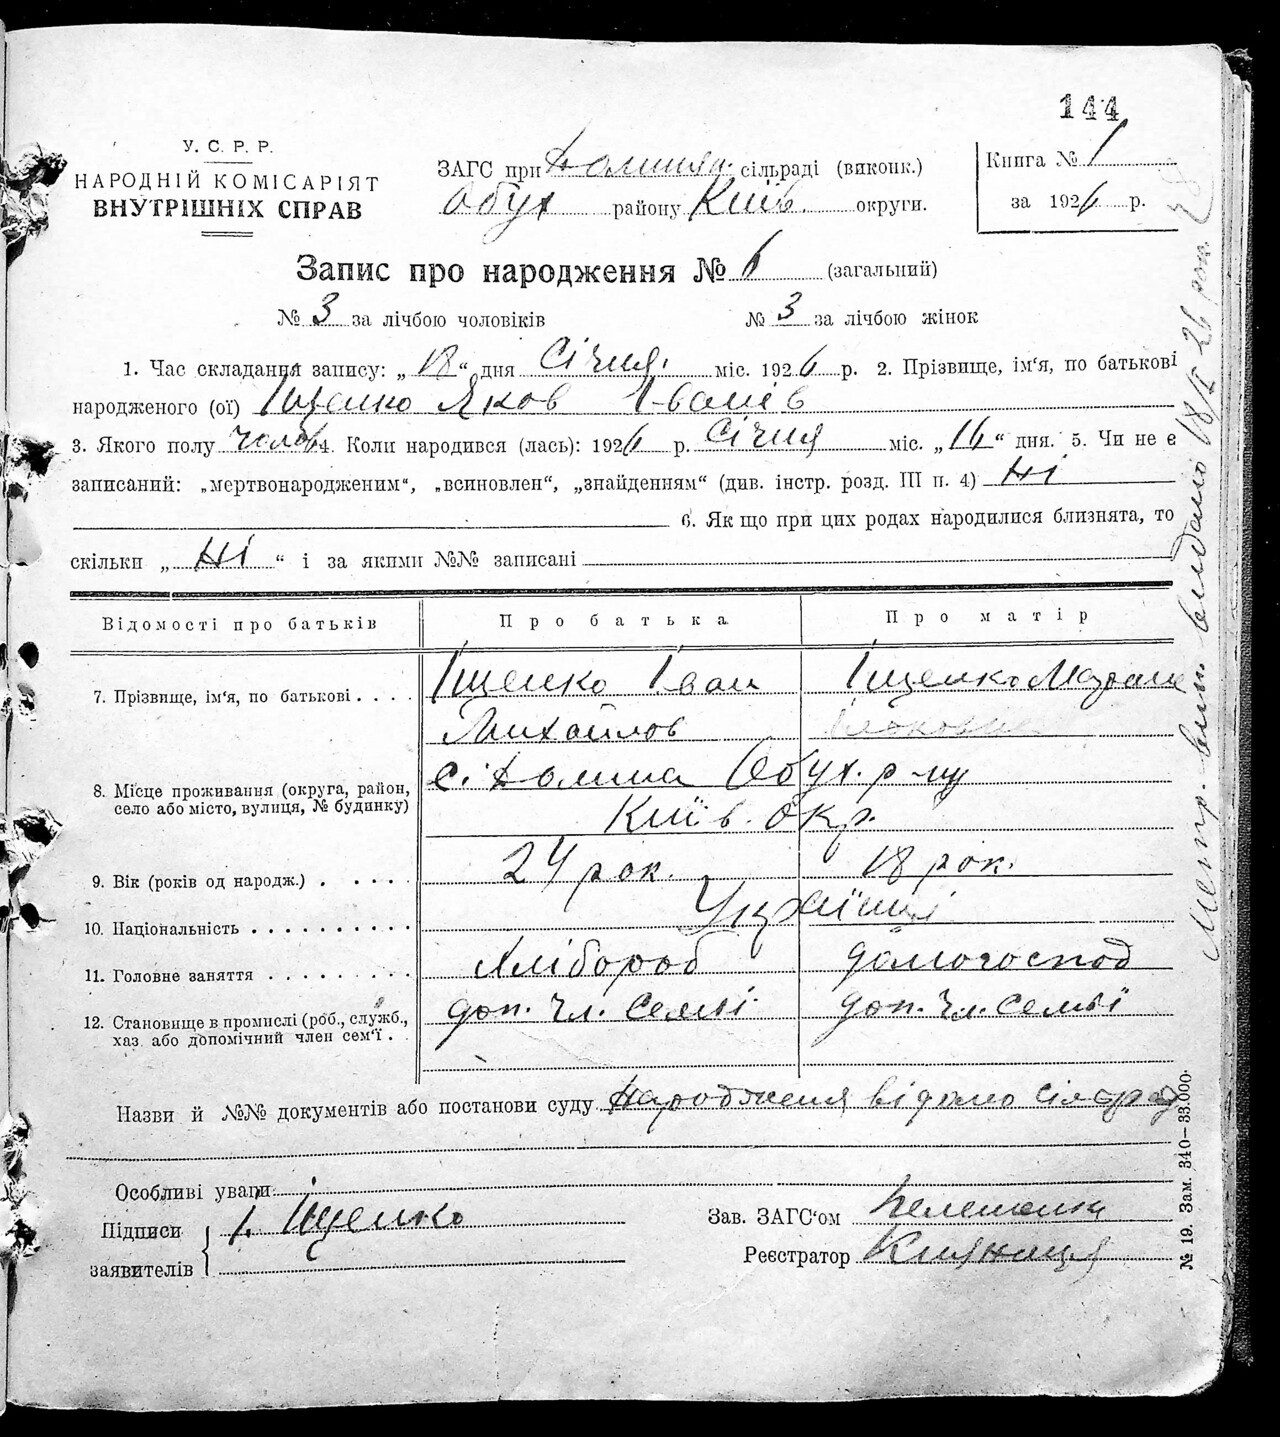 144
У. С. Р. Р.
НАРОДНІЙ КОМІСАРІЯТ
ВНУТРІШНІХ СПРАВ
ЗАГС при Долинян. сільраді (виконк.)
Обух району Київ. округи.
Книга № 1
за 1926 р.
Запис про народження № 6 (загальний)
№ 3 за лічбою чоловіків № 3 за лічбою жінок
1. Час складання запису: „18“ дня Січня. міс. 1926 р. 2. Прізвище, ім‘я, по батькові
народженого (ої) Іщенко Яков Іванів
3. Якого полу чолов 4. Коли народився (лась): 1926 р. Січня міс. „16“ дня. 5. Чи не є
записаний: „мертвонародженим“, „всиновлен“, „знайденням“ (див. інстр. розд. III п. 4) Ні
6. Як що при цих родах народилися близнята, то
скільки „Ні“ і за якими №№ записані
Відомості про батьків Про батька Про матір
7. Прізвище, ім‘я, по батькові . . . . Іщенко Іван Іщенко
Михайлов
8. Місце проживання (округа, район,
село або місто, вулиця, № будинку)
с. Долина Обух. р-ну
Київ. окр.
9. Вік (років од народж.) . . . . . 24 рок. 18 рок.
10. Національність . . . . . . . . . . Українці
11. Головне заняття . . . . . . . . . Хлібороб домогоспод
12. Становище в промислі (роб., служб.,
хаз. або допомічний член сем‘ї . .
доп. чл. семьі доп. чл. семьї
Назви й №№ документів або постанови суду Народження відомо сільрад
Особливі уваги
Підписи
заявителів
І. Іщенко
Зав. ЗАГС‘ом
Реєстратор Княниця
№ 19. Зам. 340–33.000.
Метр. вип. видано 18/I 26 рок